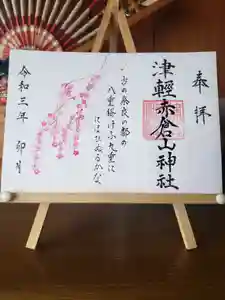 奉拝
津輕赤倉山神社
いにしへの奈良の都の
八重桜けふ九重に
にほひぬるかな
令和三年 卯月